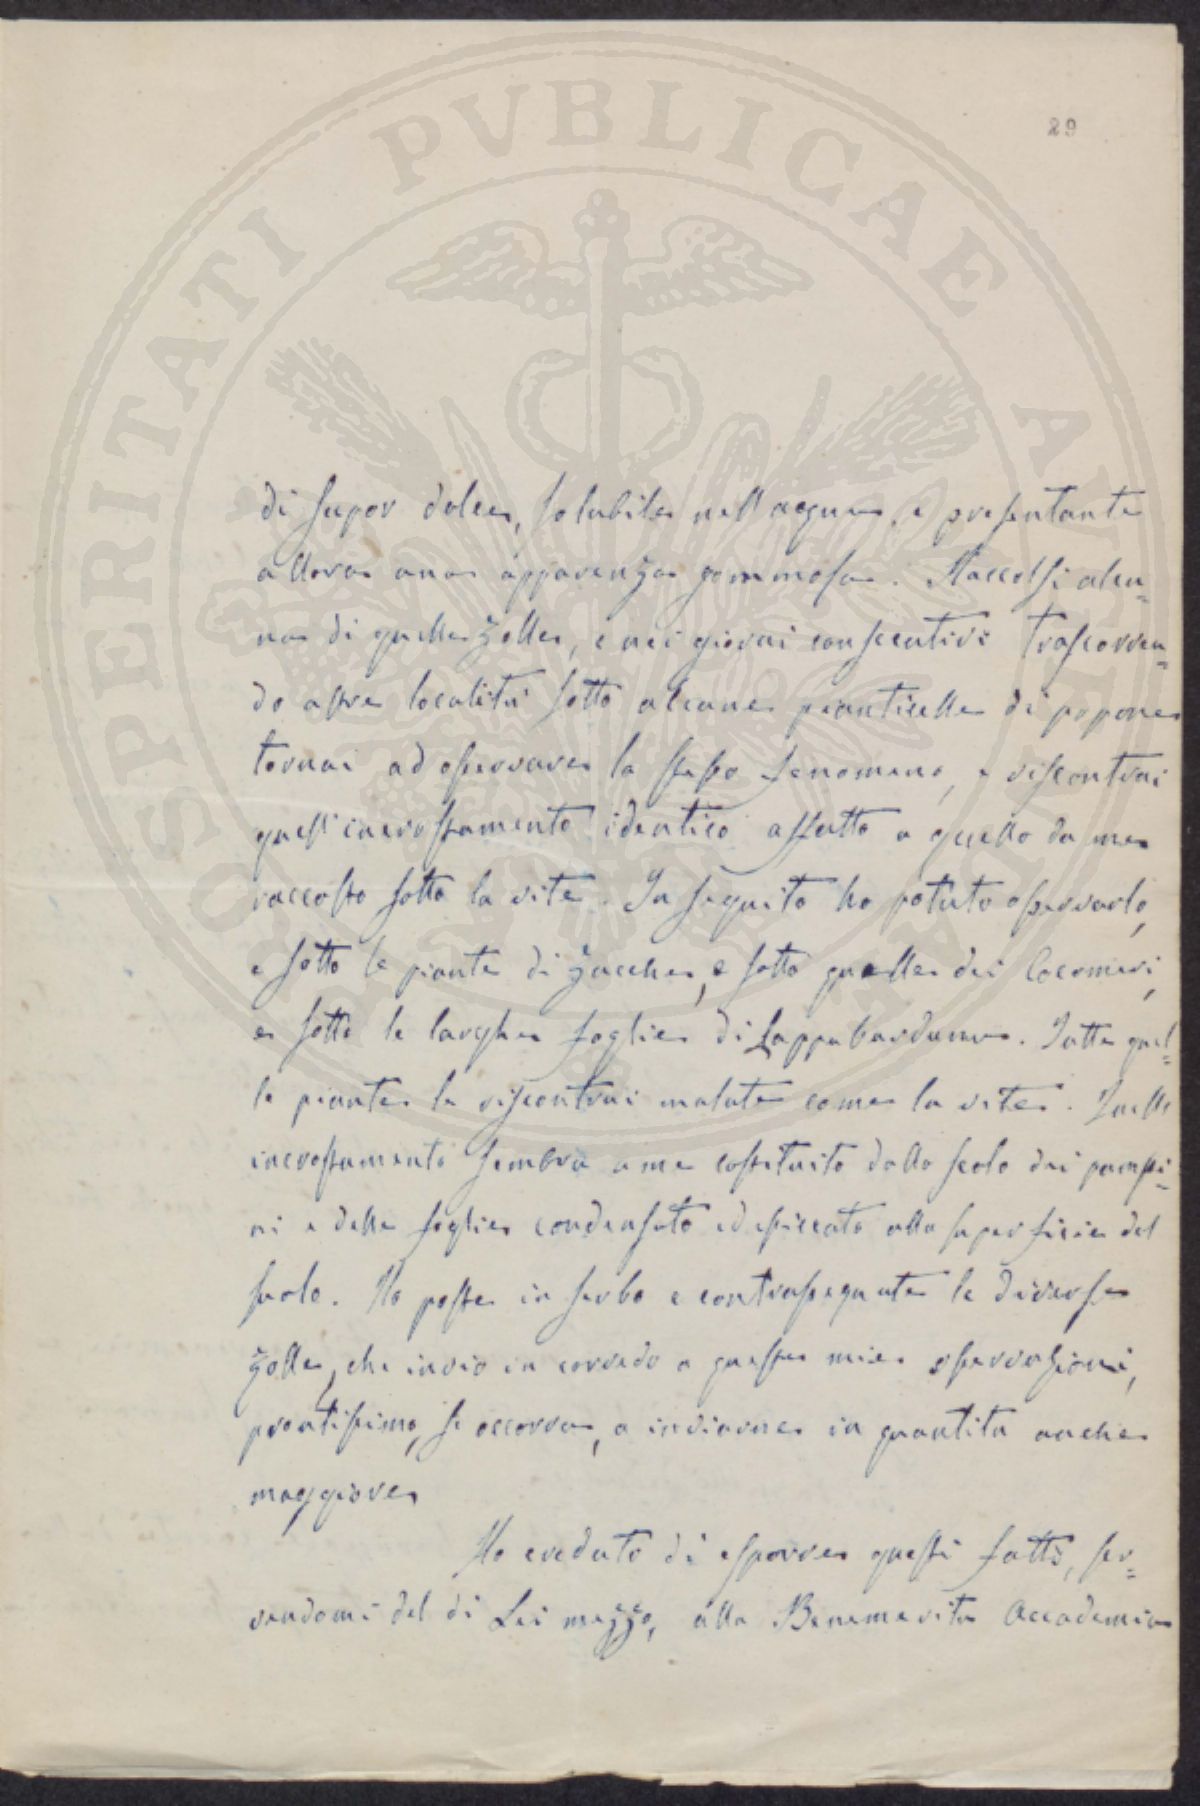 29
PROSPERITATI PUBLICAE AUGENDAE
di sapor dolce, solubile nell'acqua, e presentante
allora una apparenza gommosa. Raccolsi alcu=
na di quelle zolle, e nei giorni consecutivi trascorren=
do altre località sotto alcune pianticelle di popone
tornai ad osservare lo stesso fenomeno, e riscontrai
quell'incrostamento identico affatto a quello da me
raccolto sotto la vite. In seguito ho potuto osservarlo,
e sotto le piante di zucche, e sotto quelle dei Cocomeri,
e sotto le larghe foglie di Lappa bardana. Tutte quel=
le piante le riscontrai malate come la vite. Quello
incrostamento sembra a me costituito dallo scolo dei pampi=
ni e delle foglie condensato ed essiccato alla superficie del
suolo. Ho poste in serbo e contrassegnate le diverse
zolle, che invio in corredo a queste mie osservazioni,
prontissimo, se occorra, a inviarne in quantità anche
maggiore
Ho creduto di esporre questi fatti, ser=
vendomi del di Lei mezzo, alla Benemerita Accademia